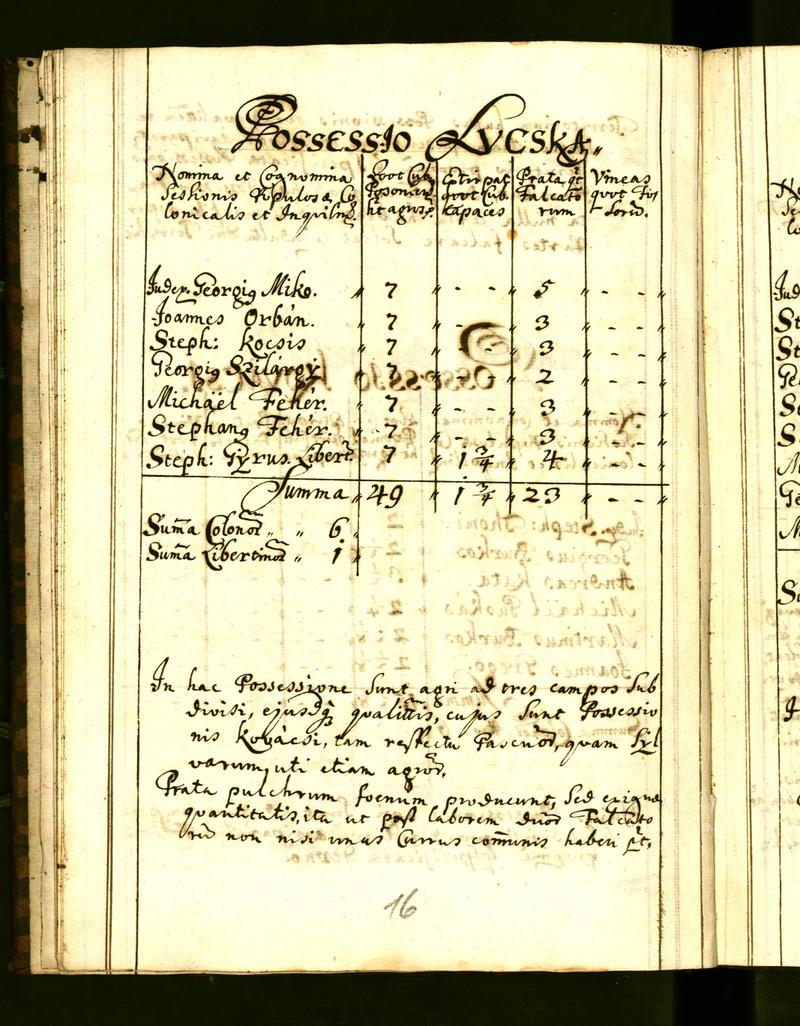 Possessio Lucska
Nomina et Cognomina Sessionis Populosae Colonicalis et Inquilin.
Quot Cub. Posonien. ht agros.
Extirpat. quot Cub. Capaces
Prata qt Falcatorum
Vineas quot Fossorum.
Judex. Georgig Miko. 7 - - 5 - -
Joannes Orbán. 7 - - 3 - -
Steph: Kocsis 7 - - 3 - -
Georgig Szilárgÿ 7 - - 2 - -
Michäel Fehér. 7 - - 3 - -
Stephang Fehér. 7 - - 3 - -
Steph: Gyrus. Libert. 7 1 3/4 4 - -
Summa 49 1 3/4 23 - -
Sum̄a Colonor̄. 6.
Sum̄a Libertinor̄ 1
In hac Possessione Sunt agri ad tres campos Sub
divisi, ejusdq̃ qualitatis, cujus Sunt Possessio
nis Kovácsi, tam respectu Pascuor̄, quam Syl
varum, uti etiam agror̄.
Prata pulchrum foenum producunt, Sed exiguae
quantitatis, ita ut post laborem duor̄ Falcato
rū non nisi unus Currus com̄unis haberi pt.
16